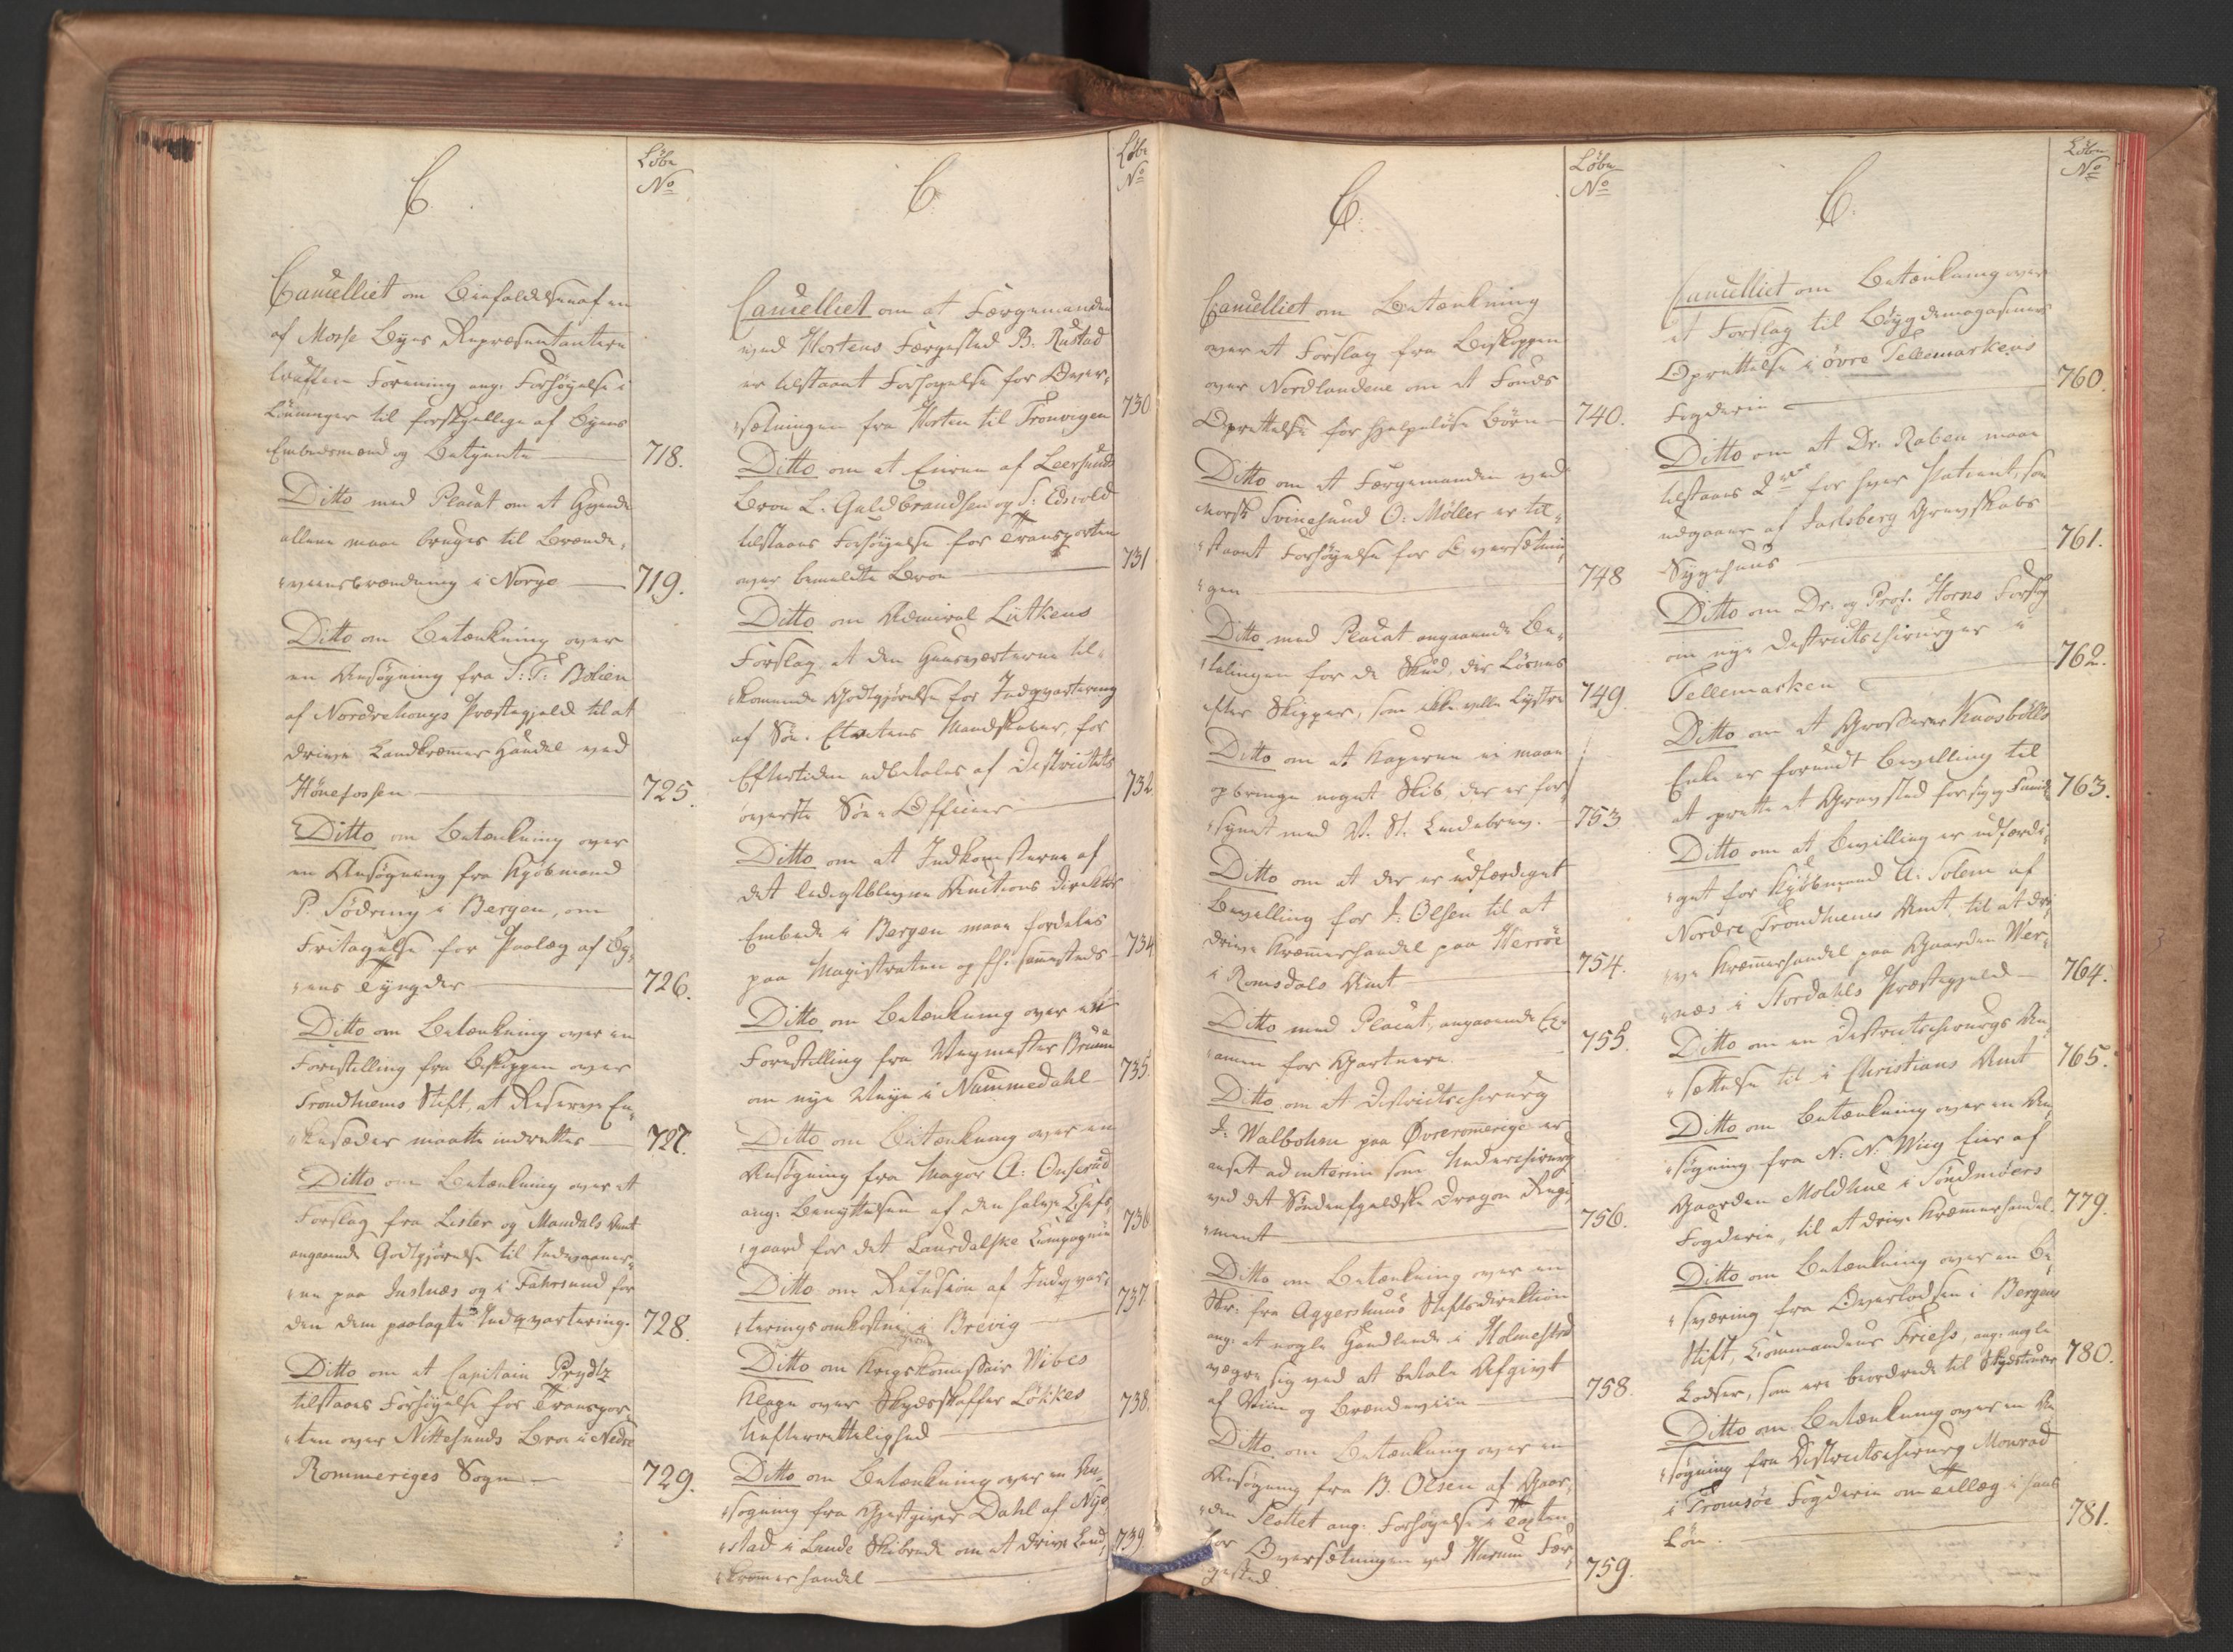 C
Löbe
No
Cancelliet om Bifaldelsen af en
af Mosse Byes Repræsentantere
truffen Forening ang: Forhöyelse i
Lönninger til forskjellige af Byens
Embedsmænd og Betjente
718.
Ditto med Placat om at Gjende
allene maa bruges til Brænde-
viinsbrænding i Norge
719.
Ditto om Betænkning over
en Ansögning fra
af Nordrehougs Præstegjeld til at
drive Landkræmer Handel ved
Hönefossen
725.
Ditto om Betænkning over
en Ansögning fra Kjöbmand
P. Södring i Bergen, om
Fritagelse for Paalæg af By-
ens Tyngder
726.
Ditto om Betænkning over en
Forestilling fra Biskoppen over
Trondhiems Stift, at Reserve En-
kesæder maatte indrettes
727.
Ditto om Betænkning over et
Forslag fra Lister og Mandals Amt
angaaende Godtgjörelse til Indvaaner-
ne paa og i Fahrsund for
den dem paalagte Indqvartering.
728.
Ditto om at Capitain Prydtz
tilstaaes Forhöyelse for Transpor-
ten over Nittesunds Broe i Nedre
Rommeriges Sogn
729.
C.
Löbe
No
Cancelliet om at Færgemanden
ved Hortens Færgested B. Rustad
er tilstaaet Forhöyelse for Over-
sætningen fra Horten til Tronvigen
730
Ditto om at Eieren af Leersunds
Broe L. Guldbrandsen og
tilstaaes Forhöyelse for Transporten
over bemeldte Broe
731
Ditto om Admiral Lütkens
Forslag, at den Huusværterne til-
kommende Godtgjörelse for Indqvartering
af Söe-Etatens Mandskaber, for
Eftertiden udbetales af Districtets
överste Söe-Officier
732.
Ditto om at Indkomsterne af
det ledigblevne Auctions Direkteur
Embede i Bergen maae fordeles
paa Magistraten og sammesteds
734
Ditto om Betænkning over en
Forestilling fra Veymester Bruun
om nye Veye i Nummedahl
735.
Ditto om Betænkning over en
Ansögning fra Major A: Onserud
ang. Benyttelsen af den halve Chefs-
gaard for det Laurdalske Compagnie
736
Ditto om Refusion af Indqvar-
teringsomkostninger i Brevig
737.
Ditto om Krigskomissair Vibes
Klage over Skydsskaffer Lökkes
Uefterrettelighed
738.
Ditto om Betænkning over en An-
sögning fra Gjestgiver Dahl af Nye-
stad i Lunde Skibrede om at drive Land-
kræmerhandel
739.
C.
Löbe
No
Cancelliet om Betænkning
over et Forslag fra Biskoppen
over Nordlandene om et Fonds
Oprettelse for hjelpelöse Börn
740.
Ditto om at Færgemanden ved
norsk Svinesund O: Möller er til-
staaet Forhöyelse for Oversætnin-
gen
748
Ditto med Placat angaaende Be-
talingen for de Skud, der Lösnes
efter Skipper, som ikke ville Lystre
749.
Ditto om at Kaperne ei maae
opbringe noget Skib, der er for-
synet med
753
Ditto om at der er udfærdiget
Bevilling for J: Olsen til at
drive Kræmmerhandel paa Herröe
i Romsdals Amt
754.
Ditto med Placat, angaaende Ex-
amen for Gartnere.
755.
Ditto om at Districtschirurg
J: Walbohm paa Övreromerige er
ansat ad interim som Underchirurg
ved det Söndenfjeldske Dragon Regi-
ment
756.
Ditto om Betænkning over en
Skr: fra Aggershuus Stiftsdirektion
ang: at nogle Handlende i Holmestrand
vægre sig ved at betale Afgivt
af Viin og Brændeviin
758.
Ditto om Betænkning over en
Ansögning fra B. Olsen af Gaar-
den Slottet ang. Forhöyelse i Taxten
for Oversætningen ved Hurum Fær-
gested.
759.
C.
Löbe
No
Cancelliet om Betænkning over
et Forslag til Böygdemagasiners
Oprettelse i övre Tellemarkens
Fogderie
760.
Ditto om at Dr. Raben maae
tilstaaes 2 for hver Patient, som
udgaaer af Jarlsberg Grevskabs
Sygehuus
761.
Ditto om Dr. og Prof. Horns Forslag
om nye Districtschirurger i
Tellemarken
762.
Ditto om at Grosserer Knoosbölls
Enke er forundt Bevilling til
at oprette et Gravsted for sig og Familie
763.
Ditto om at Bevilling er udfærdi-
get for Kjöbmand A: Solem af
Nordre Trondhiems Amt til at dri-
ve Kræmmerhandel paa Gaarden Wer-
næs i Stordahls Præstegjeld
764.
Ditto om en Districtschirurgs An-
sættelse til i Christians Amt
765.
Ditto om Betænkning over en An-
sögning fra N: N: Wiig Eier af
Gaarden Moldhue i Söndmöers
Fogderie, til at drive Kræmmerhandel.
779.
Ditto om Betænkning over en Be-
sværing fra Overlodsen i Bergens
Stift, Commandeur Friess, ang: nogle
Lodser, som ere beordrede til Skydstourer
780.
Ditto om Betænkning over en An-
sögning fra Districtschirurg Monrad
i Tromsöe Fogderie om Tillæg i hans
Lön.
781.